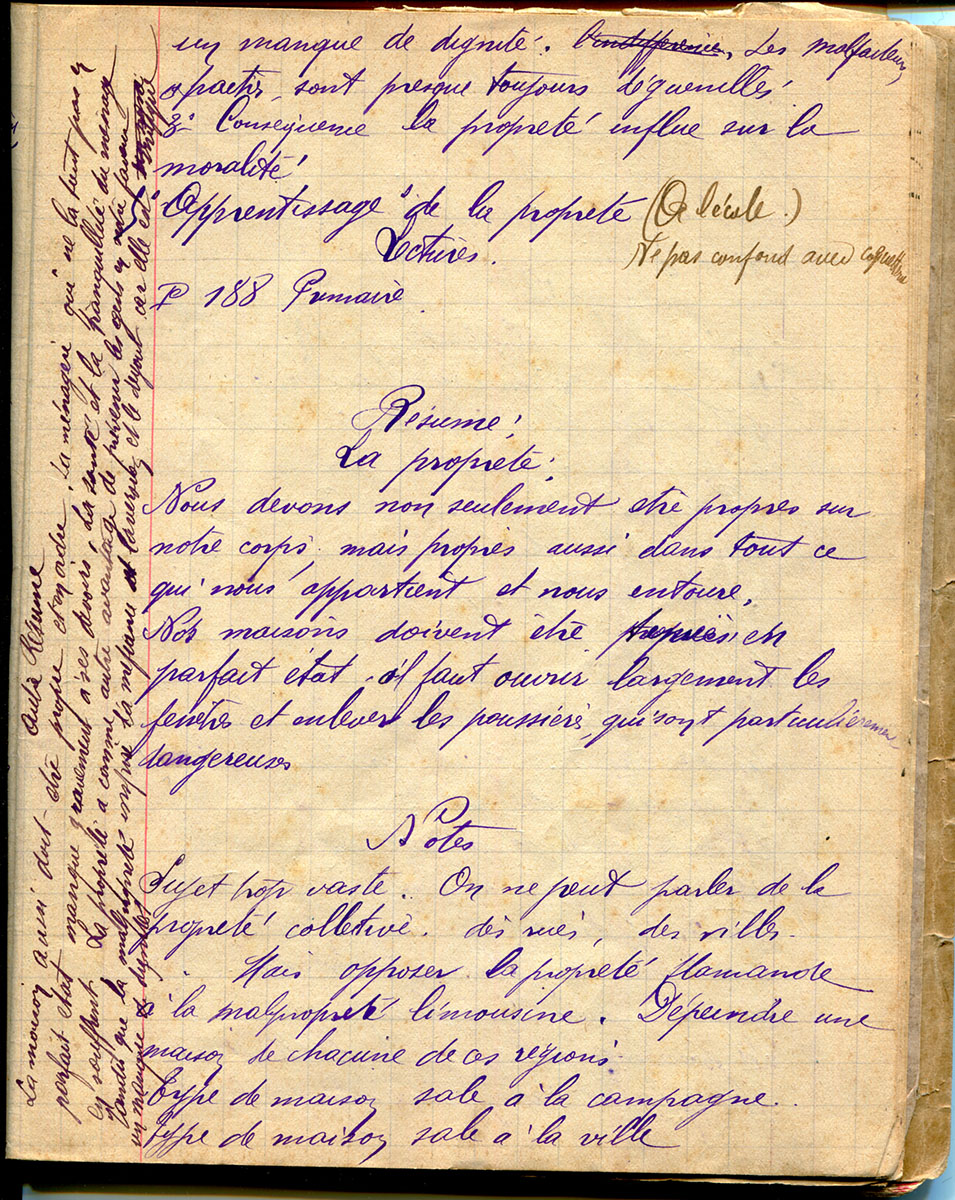 un manque de dignité. l'indifférence, Les malfaiteurs
sont presque toujours déguenillés
3° Conséquence la propreté influe sur la
moralité
Apprentissage de la propreté (A l'école.)
Lectures. Ne pas confond avec coquetterie
P 188 Primaire
Résumé
La propreté.
Nous devons non seulement etre propres sur
notre corps, mais propres aussi dans tout ce
qui nous appartient et nous entoure.
Nos maisons doivent être en
parfait état. il faut ouvrir largement les
fenêtres et enlever les poussières, qui sont particulièrement
dangereuses
Notes
Sujet trop vaste. On ne peut parler de la
propreté collective. des rues, des villes.
Mais opposer la propreté flamande
à la malpropreté limousine. Dépeindre une
maison de chacune de ces régions
type de maison sale à la campagne.
type de maison sale à la ville
Autre Résumé
La maison aussi doit-être propre et en ordre. La ménagère qui ne la tient pas en
parfait état manque gravement à ses devoirs, La santé et la tranquillité du ménage
en souffrent. La propreté a comme autre avantage de prévenir les gens en notre faveur
tandis que la malpropreté inspire la méfiance et le dégout car elle est
un manque de dignité